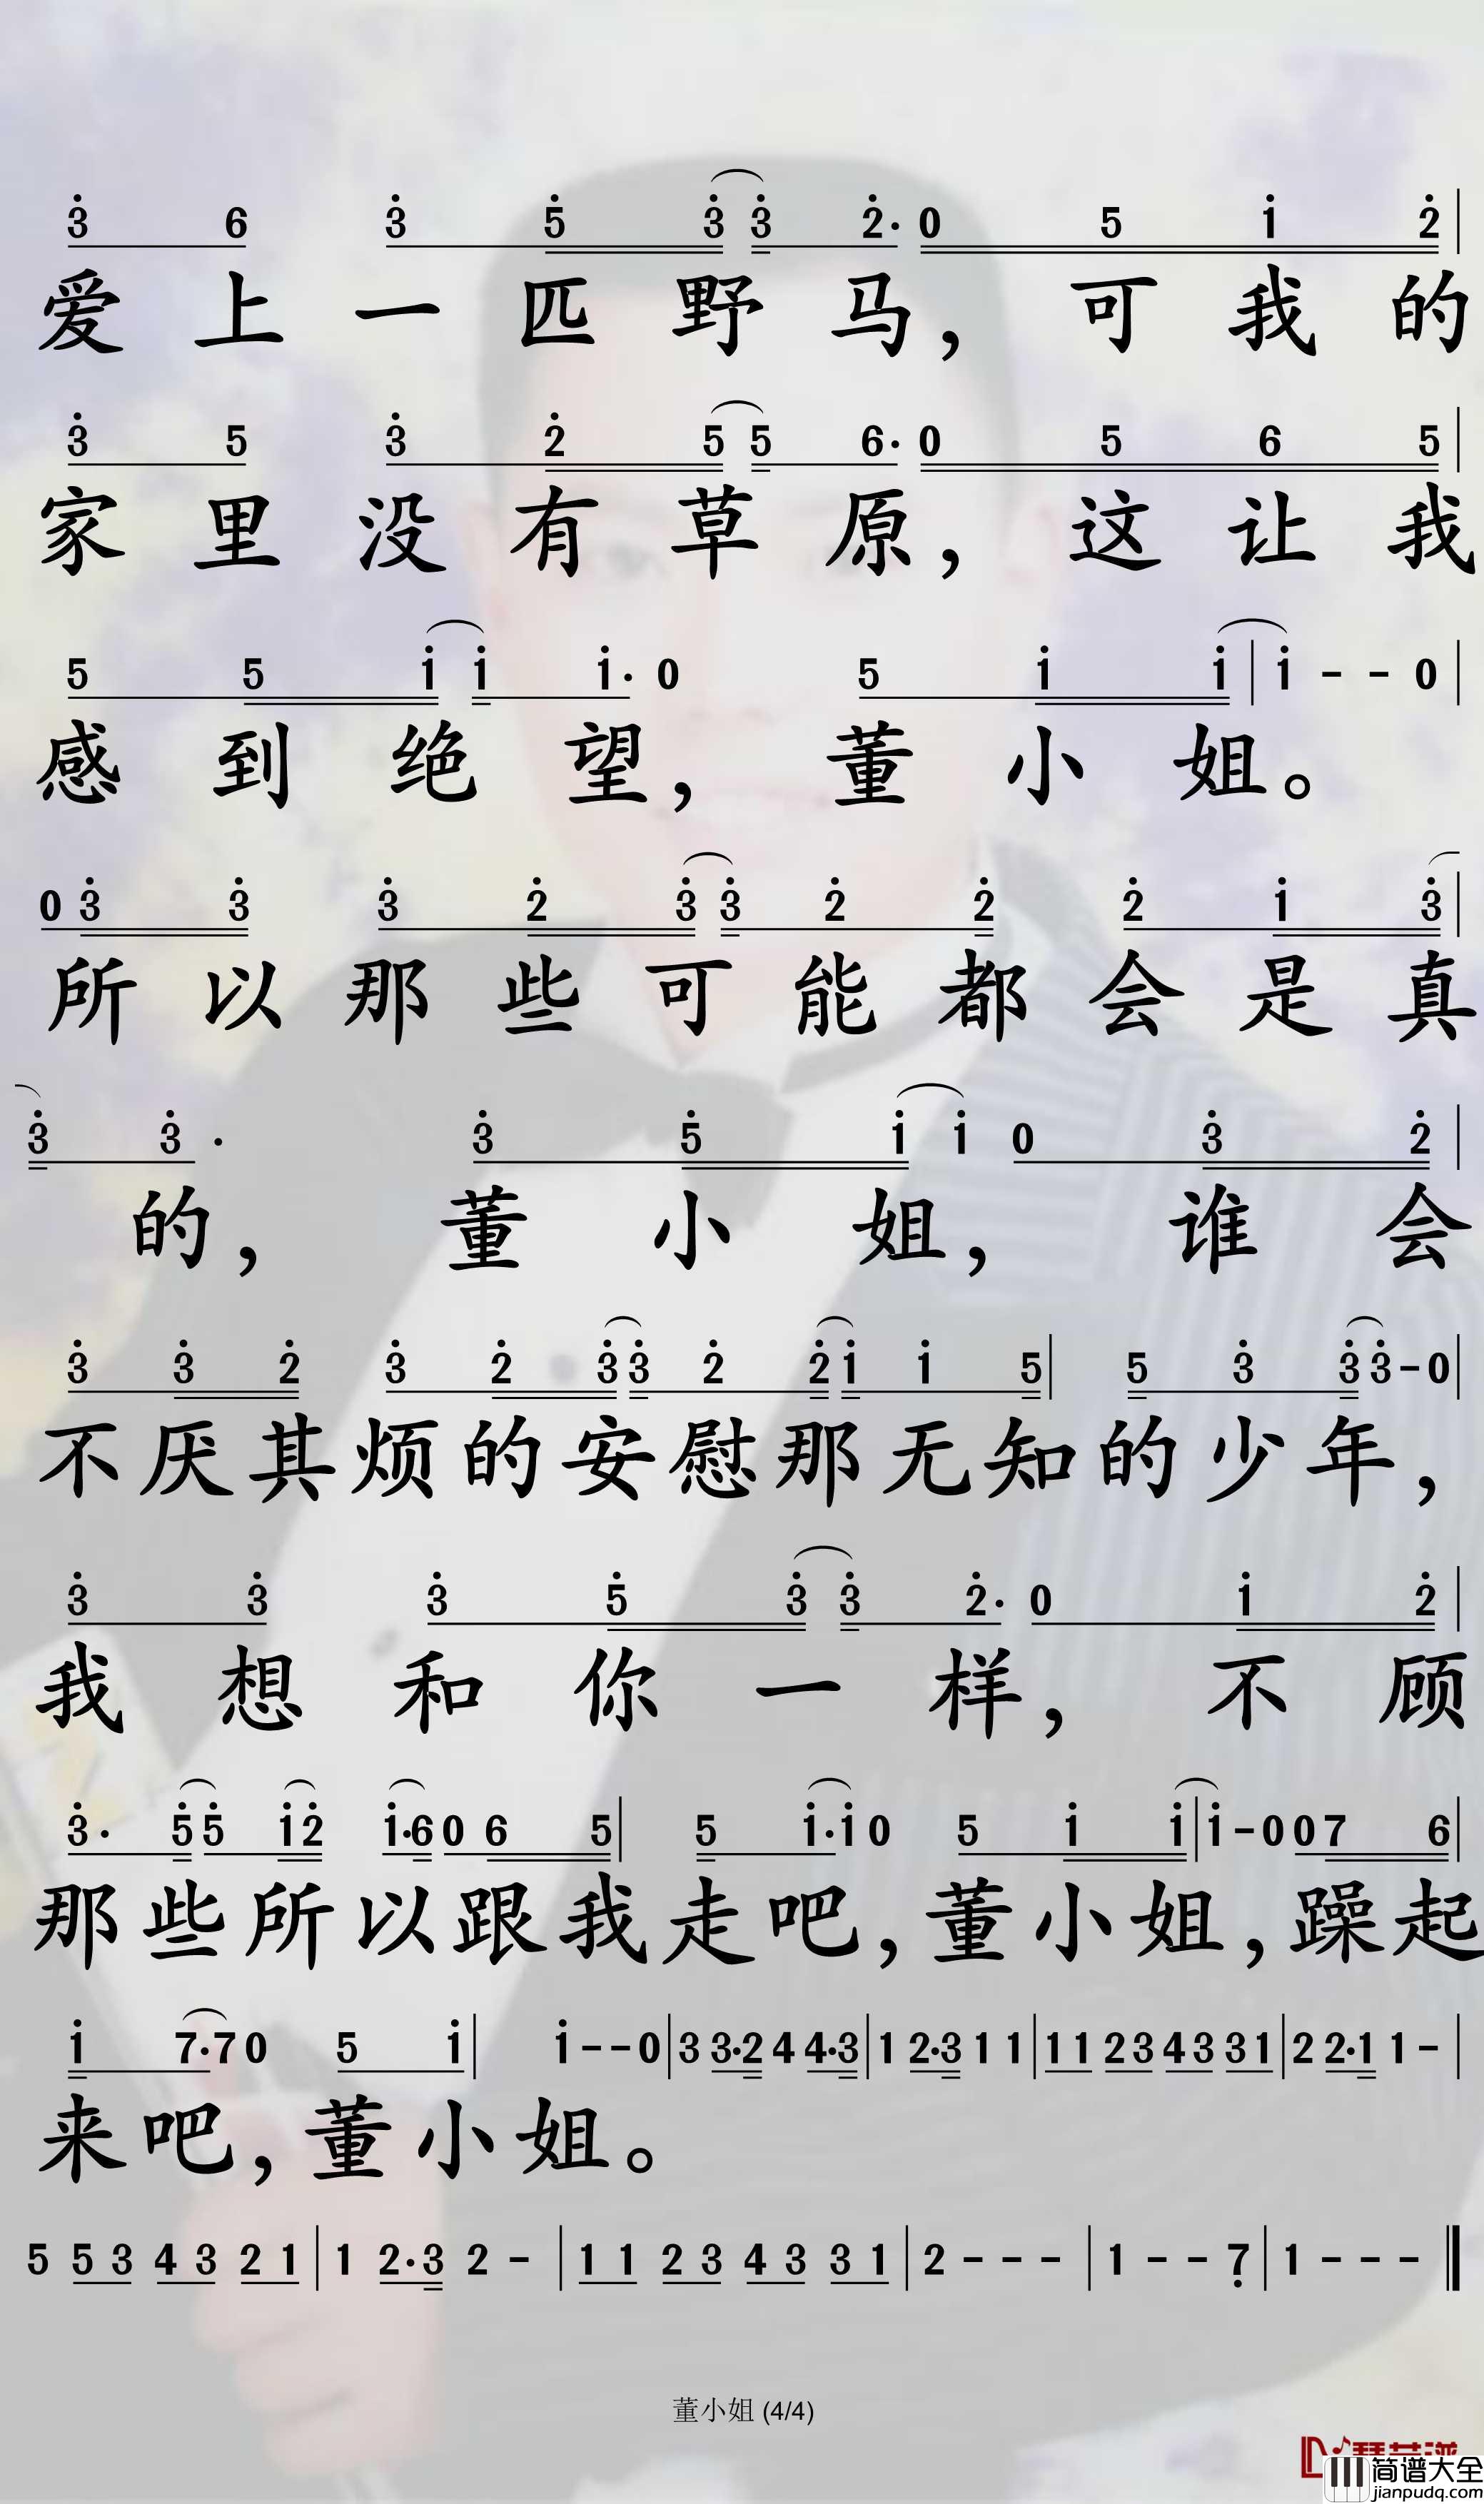 3̇ 6 3̇ 5̇ 3̇ 3̇ 2̇· 0 5 1̇ 2̇ |
爱上一匹野马，可我的
3̇ 5 3̇ 2̇ 5 5 6· 0 5 6 5 |
家里没有草原，这让我
5 5 1̇ 1̇ 1̇· 0 5 1̇ 1̇ | 1̇ - - 0 |
感到绝望，董小姐。
0 3̇ 3̇ 3̇ 2̇ 3̇ 3̇ 2̇ 2̇ 2̇ 1̇ 3̇ |
所以那些可能都会是真
3̇ 3̇· 3̇ 5̇ 1̇ 1̇ 0 3̇ 2̇ |
的，董小姐，谁会
3̇ 3̇ 2̇ 3̇ 2̇ 3̇ 3̇ 2̇ 2̇ 1̇ 1̇ 5 | 5 3̇ 3̇ 3̇ - 0 |
不厌其烦的安慰那无知的少年，
3̇ 3̇ 3̇ 5̇ 3̇ 3̇ 2̇· 0 1̇ 2̇ |
我想和你一样，不顾
3̇· 5̇ 5̇ 1̇ 2̇ 1̇· 6 0 6 5 | 5 1̇· 1̇ 0 5 1̇ 1̇ | 1̇ - 0 0 7 6 |
那些所以跟我走吧，董小姐，躁起
1̇ 7· 7 0 5 1̇ | 1̇ - - 0 | 3 3· 2 4 4· 3 | 1 2· 3 1 1 | 1 1 2 3 4 3 3 1 | 2 2· 1 1 - |
来吧，董小姐。
5 5 3 4 3 2 1 | 1 2· 3 2 - | 1 1 2 3 4 3 3 1 | 2 - - - | 1 - - 7̣ | 1 - - - ‖
董小姐 (4/4)
简谱大全
jianpudq.com